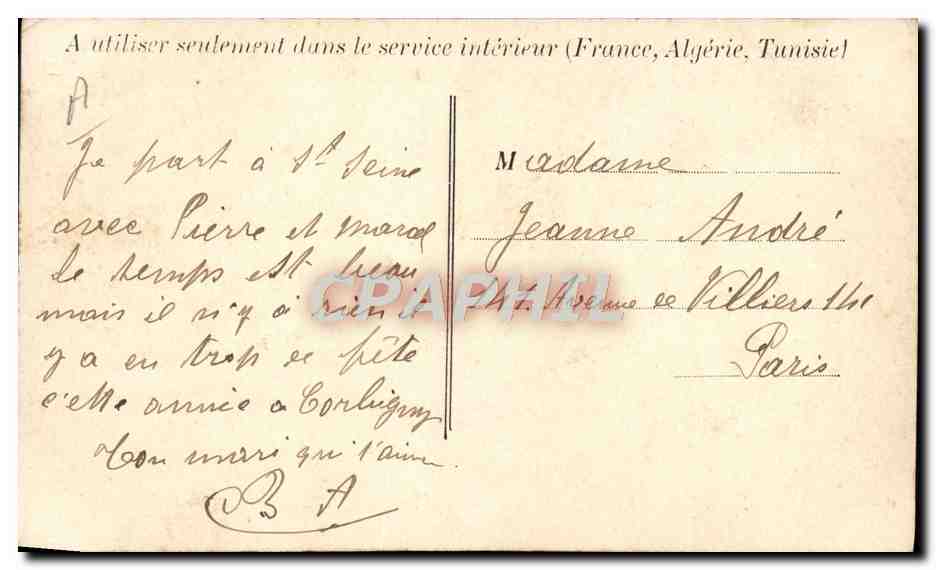 A utiliser seulement dans le service intérieur (France, Algérie, Tunisie)
A
Je part à St Seine
avec Pierre et Marcel
le temps est beau
mais il n'y a rien il
y a eu trop de fête
c'ette année a Corbigny
Ton mari qui t'aime
B A
Madame
Jeanne André
141 Avenue de Villiers 141
Paris
CPAPHIL